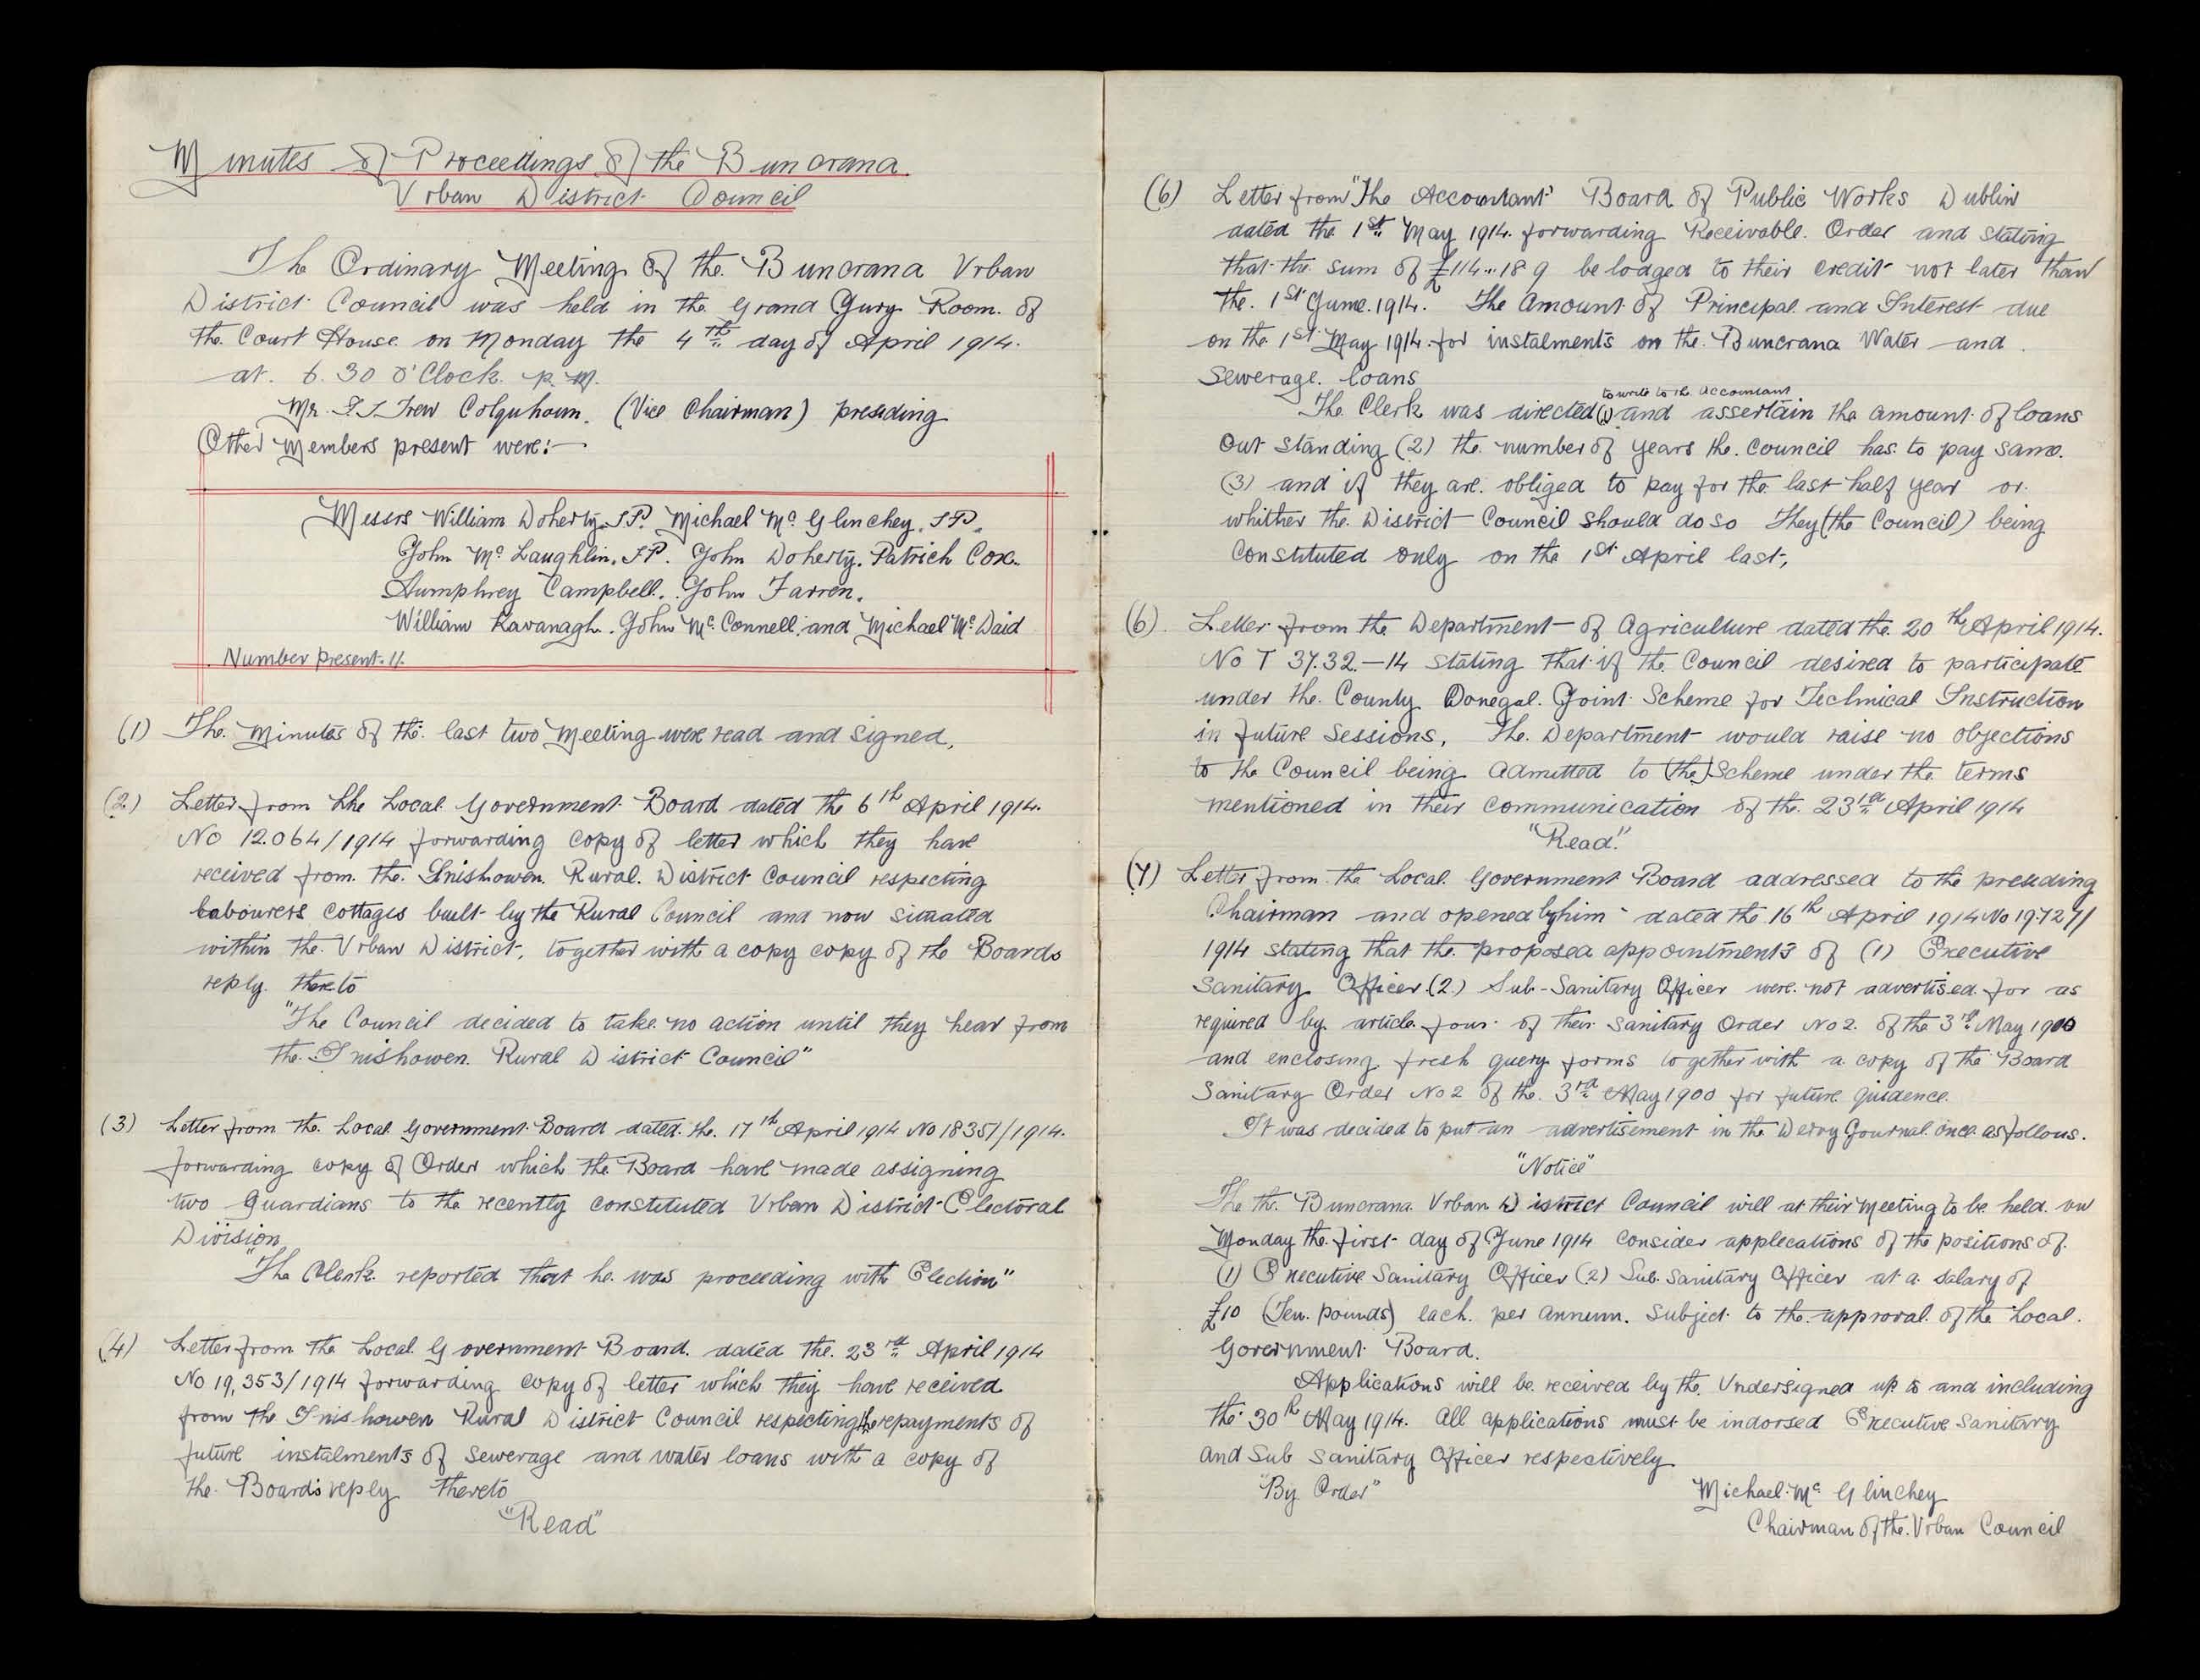 Minutes of Proceedings of the Buncrana
Urban District Council
The Ordinary Meeting of the Buncrana Urban
District Council was held in the Grand Jury Room of
the Court House on Monday the 4th day of April 1914.
at 6.30 O'Clock p.m.
Mr. Trew Colquhoun. (Vice Chairman) presiding
Other Members present were:—
Messrs William Doherty. J.P. Michael McGlinchey. J.P.
John McLaughlin. J.P. John Doherty. Patrick Cox.
Humphrey Campbell. John Farren.
William Kavanagh. John McConnell. and Michael McDaid
Number present. 11.
(1) The Minutes of the last two Meeting were read and signed,
(2) Letter from the Local Government Board dated the 6th April 1914.
No 12.064/1914 forwarding copy of letter which they have
received from the Inishowen Rural District Council respecting
Labourers cottages built by the Rural Council and now situated
within the Urban District, together with a copy copy of the Boards
reply thereto
"The Council decided to take no action until they hear from
the Inishowen Rural District Council"
(3) Letter from the Local Government Board dated the 17th April 1914 No 18351/1914.
forwarding copy of Order which the Board have made assigning
two Guardians to the recently constituted Urban District Electoral
Division
"The Clerk reported that he was proceeding with Election"
(4) Letter from the Local Government Board dated the 23rd April 1914
No 19,353/1914 forwarding copy of letter which they have received
from the Inishowen Rural District Council respecting the repayments of
future instalments of Sewerage and water loans with a copy of
the Boards reply thereto
"Read"
(6) Letter from "The Accountant" Board of Public Works Dublin
dated the 1st May 1914. forwarding Receivable Order and stating
that the sum of £114..18 9 be lodged to their credit not later than
the 1st June 1914. The Amount of Principal and Interest due
on the 1st May 1914 for instalments on the Buncrana Water and
Sewerage loans
to write to the Accountant
The Clerk was directed (1) and assertain the amount of loans
out standing (2) the number of years the Council has to pay same.
(3) and if they are obliged to pay for the last half year or
whither the District Council should do so They (the Council) being
constituted only on the 1st April last,
(6) Letter from the Department of Agriculture dated the 20th April 1914.
No T 3732–14 stating that if the Council desired to participate
under the County Donegal Joint Scheme for Technical Instruction
in future Sessions, The Department would raise no objections
to the Council being admitted to (the) Scheme under the terms
mentioned in their communication of the 23rd April 1914
"Read."
(7) Letter from the Local Government Board addressed to the presiding
Chairman and opened by him - dated the 16th April 1914 No 19727/
1914 stating that the proposed appointments of (1) Executive
Sanitary Officer (2) Sub-Sanitary Officer were not advertised for as
required by article four of their Sanitary Order No 2. of the 3rd May 1900
and enclosing fresh query forms together with a copy of the Board
Sanitary Order No 2 of the 3rd May 1900 for future guidence.
It was decided to put an advertisement in the Derry Journal once as follous.
"Notice"
The the Buncrana Urban District Council will at their Meeting to be held on
Monday the first day of June 1914 consider applecations of the positions of
(1) Executive Sanitary Officer (2) Sub. Sanitary Officer at a salary of
£10 (Ten pounds) each per annum. Subject to the approval of the Local
Government Board.
Applications will be received by the Undersigned up to and including
the 30th May 1914. All applications must be indorsed Executive Sanitary
and Sub Sanitary Officer respectively
"By Order"
Michael McGlinchey
Chairman of the Urban Council